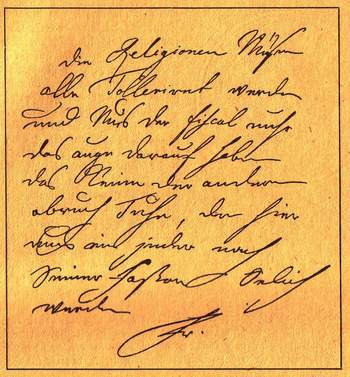 die Religionen Müsen
alle Tolleriret werden
und Mus der fiscal nuhr
das auge darauf haben
das Keine der andern
abruch Tuhe, den hier
mus ein jeder nach
Seiner Faßon Selich
werden
Fr.